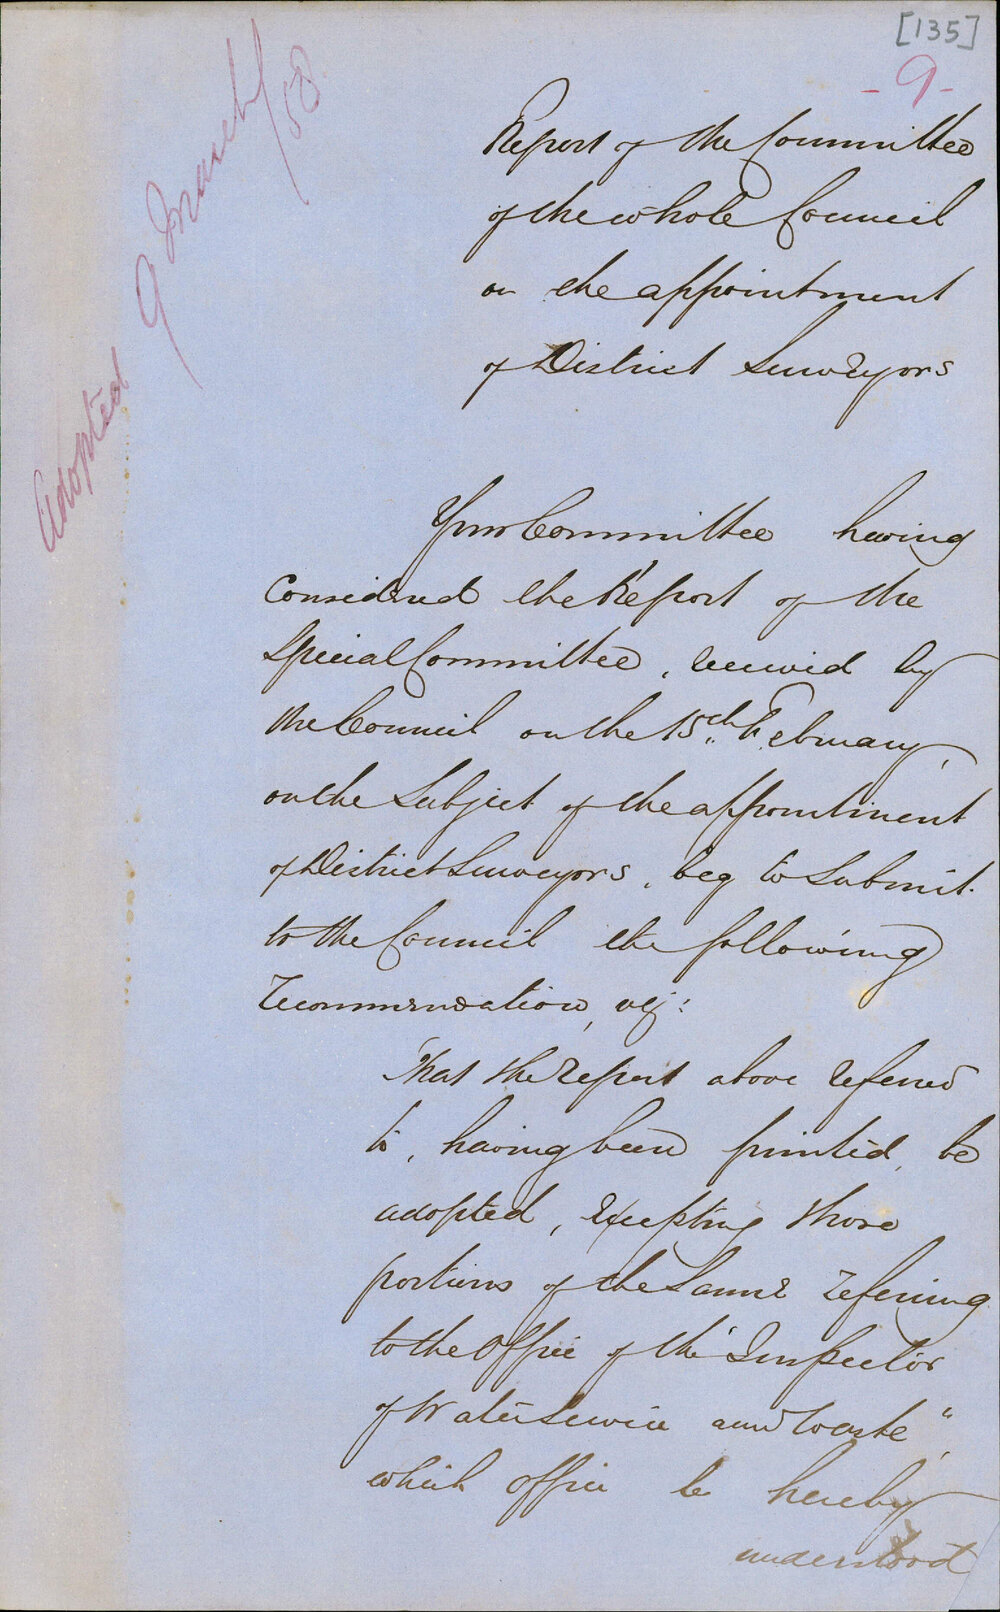 [135]
- 9 -
Adopted 9 March / 58
Report of the Committee
of the whole Council
on the appointment
of District Surveyors
Your Committee having
Considered the Report of the
Special Committee, received by
the Council on the 15th February,
on the Subject of the appointment
of District Surveyors, beg to Submit
to the Council the following
recommendation, viz:
That the Report above referred
to, having been printed, be
adopted, excepting those
portions of the Same referring
to the Office of the "Inspector
of Water Service and Waste",
which office be hereby
understood